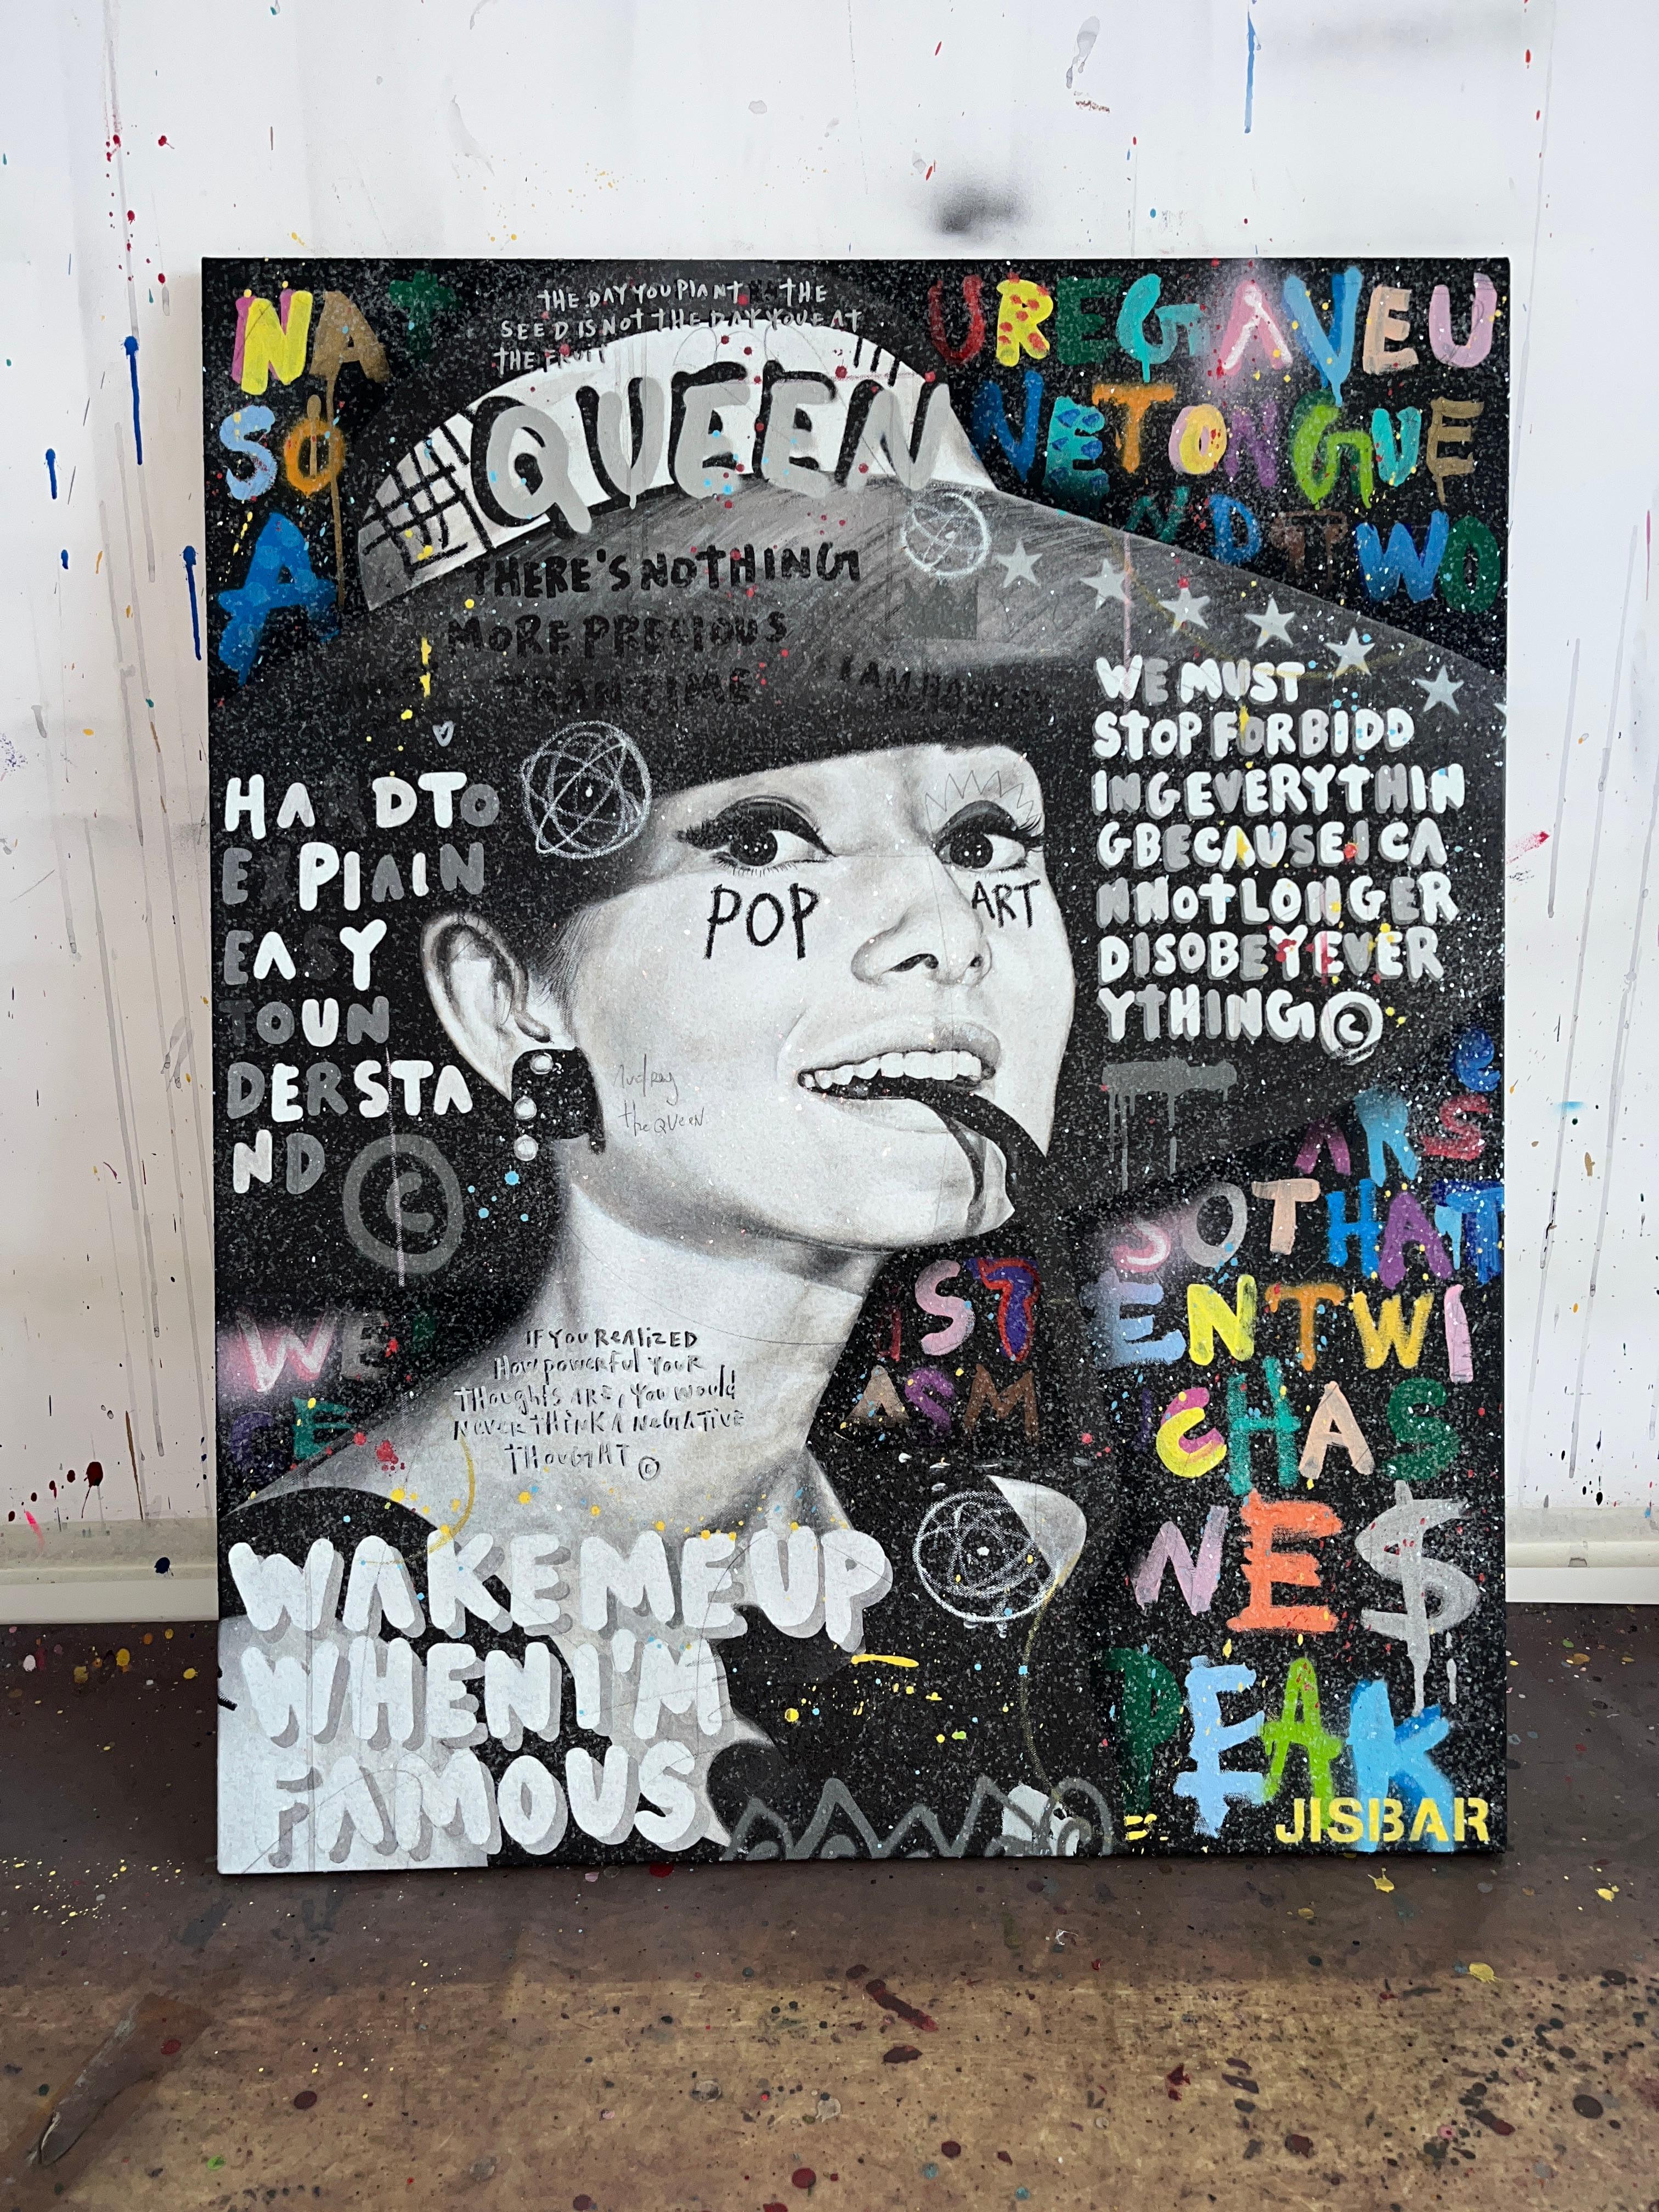 THE DAY YOU PLANT THE
SEED IS NOT THE DAY YOU EAT
THE FRUIT
NAT
UREGAVEU
SO
NETONGUE
A
NDTWO
#QUEEN
THERE'S NOTHING
MORE PRECIOUS
THAN TIME
HARDTO
EXPLAIN
EASY
TOUN
DERSTA
ND ©
POP
ART
WE MUST
STOP FORBIDD
INGEVERYTHIN
GBECAUSEICA
NNOTLONGER
DISOBEYEVER
YTHING ©
Audrey
the QUEEN
E
ARS
SOTHAT
WE
IST
ENTWI
CE
ASM
CHAS
NE$
PEAK
IF YOU REALIZED
HOW powerful YOUR
THOUGHTS ARE, YOU WOULD
NEVER THINK A NEGATIVE
THOUGHT ©
WAKEMEUP
WHENI'M
FAMOUS
JISBAR